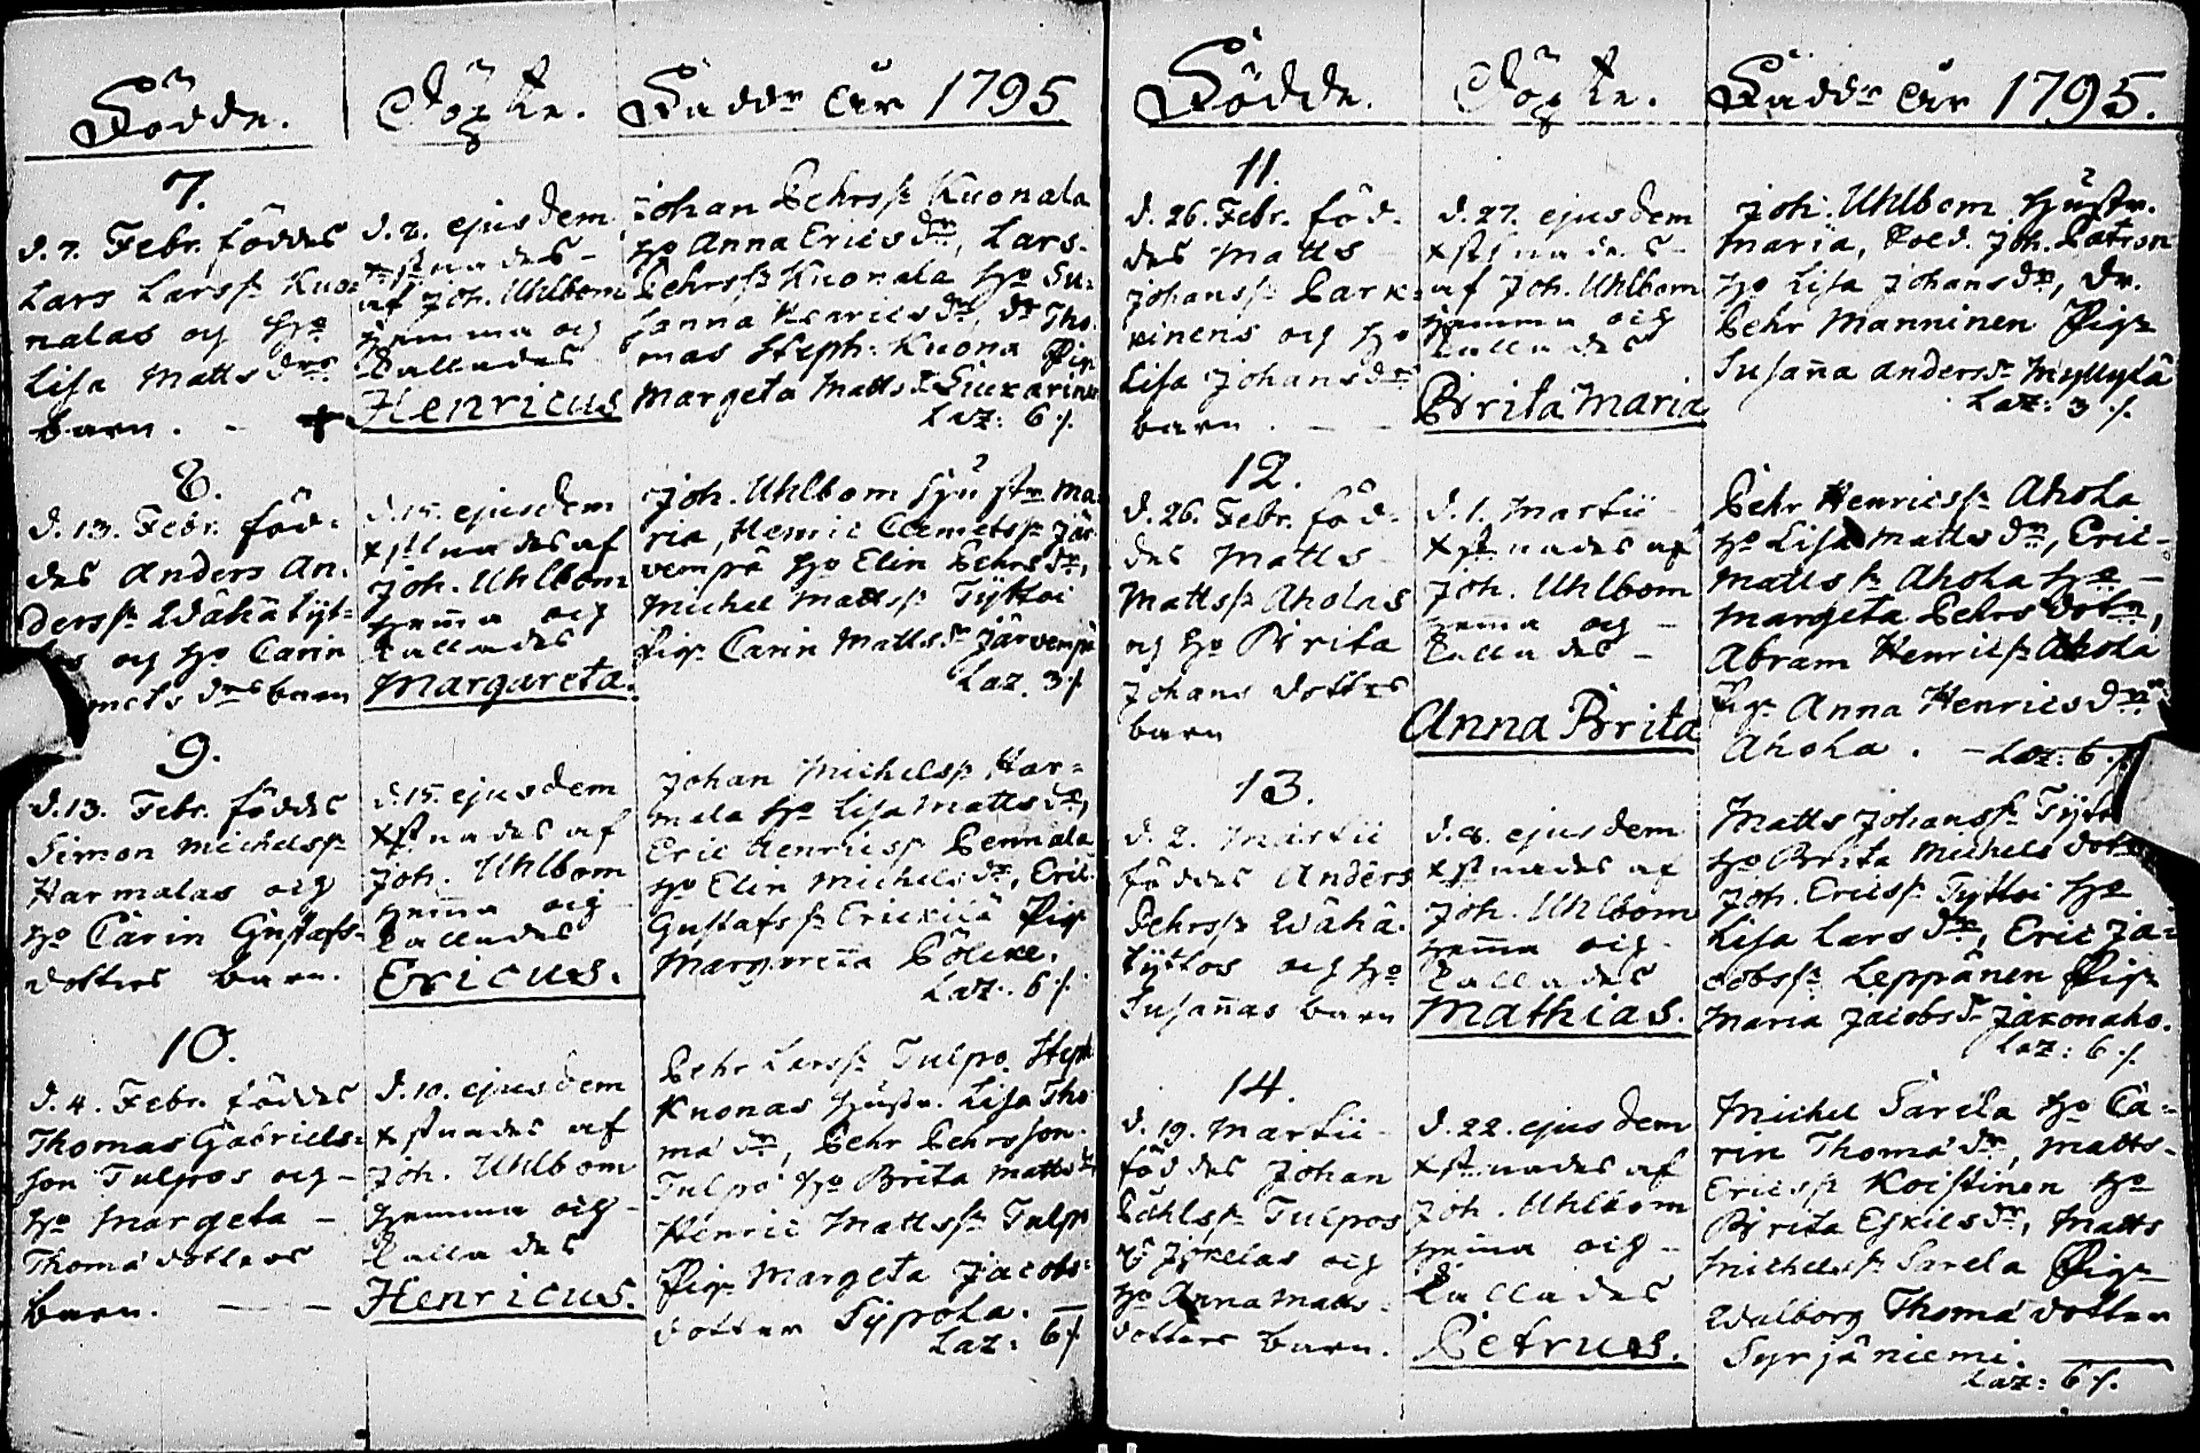 Födde.
Döpte.
Faddr år 1795
7.
d. 7. Febr. föddes
Lars Larsss Kuo=
nalas och ho
Lisa Mattsdrs
barn. - +
d. 8. ejusdem
xstnades
af Joh. Uhlbom
hemma och
kallades
Henricus
Johan Pehrss Kuonala
ho Anna Ericsdr, Lars
Pehrss Kuonala ho Su=
sanna Henricsdr, dr Tho
mas Steph: Kuona Pig
Margeta Matts
Laz: 6 s.
8.
d. 13. Febr. föd=
des Anders An=
derss Wähätyt=
och ho Carin
mets drs barn
d. 15. ejusdem
xstnades af
Joh. Uhlbom
hema och
kallades
Margareta.
Joh. Uhlbom hustr Ma=
ria, Henric Clemetss Jär
venpä ho Elin Pehrsdr,
Michel Mattss Tyttöi
Pig Carin Mattsdr Järvenpä
Laz. 3 s
9.
d. 13. Febr. föddes
Simon Michelss
Harmalas och
ho Carin Gustafs=
dotters barn.
d. 15. ejusdem
xstnades af
Joh. Uhlbom
hema och
kallades
Ericus.
Johan Michelss Har=
mala ho Lisa Mattsdr,
Eric Henricss Pennala
ho Elin Michelsdr, Eric
Gustafss Erickilä Pig
Margareta Pölcke.
Laz. 6 s.
10.
d. 4. Febr. föddes
Thomas Gabriels=
son Tulpos och -
ho Margeta -
Thomä dotters
barn. - - -
d. 10. ejusdem
xstnades af
Joh. Uhlbom
hemma och
kallades
Henricus.
Pehr Larss Tulpo, Steph
Kuonas hustr. Lisa Tho
mä dr, Pehr Pehrsson
Tulpo ho Brita Mattsdr
Henric Mattss Tulpo
Pig Margeta Jacobs=
dotter Sypola. -
Laz: 6 s
Födde.
Döpte.
Faddr år 1795.
11.
d. 26. Febr. föd=
des Matts
Johanss Park=
kinens och ho
Lisa Johansdrs
barn. - -
d. 27. ejusdem
xstnades -
af Joh. Uhlbom
hemma och
kallades
Brita Maria
Joh. Uhlbom hustr.
Maria, Sold. Joh. Patron
ho Lisa Johansdr, dr.
Pehr Manninen Pig
Susaña Andersdr Myllylä
Laz: 3 s.
12.
d. 26. Febr. föd=
des Matts
Mattss Aholas
och ho Brita
Johans dotters
barn
d. 1. Martii
xstnades af
Joh. Uhlbom
hema och -
kallades -
Anna Brita
Pehr Henricss Ahola
ho Lisa Mattsdr, Eric
Mattss Ahola ho -
Margeta Pehrs dotr,
Abram Henricss Ahola
Pig Anna Henricsdr
Ahola. - Laz: 6 s.
13.
d. 2. Martii
föddes Anders
Pehrss Wähä=
tyttös och ho
Susañas barn
d. 8. ejusdem
xstnades af
Joh. Uhlbom
hema och
kallades
Mathias.
Matts Johanss
ho Brita Michels
Joh. Ericss Tyttöi ho
Lisa Larsdr, Eric Ja=
cobss Leppänen Pig
Maria Jacobsdr Jakonaho.
Laz: 6 s.
14.
d. 19. Martii
föddes Johan
Påhlss Tulpos
Jokelas och
ho Anna Matts=
dotters barn.
d. 22. ejusdem
xstnades af
Joh. Uhlbom
hema och -
kallades
Petrus.
Michel Sarela ho Ca=
rin Thomädr, Matts
Ericss Koistinen ho
Brita Eskilsdr, Matts
Michelss Sarela Pig
Walborg Thomä dotter
Syrjäniemi. -
Laz: 6 s.